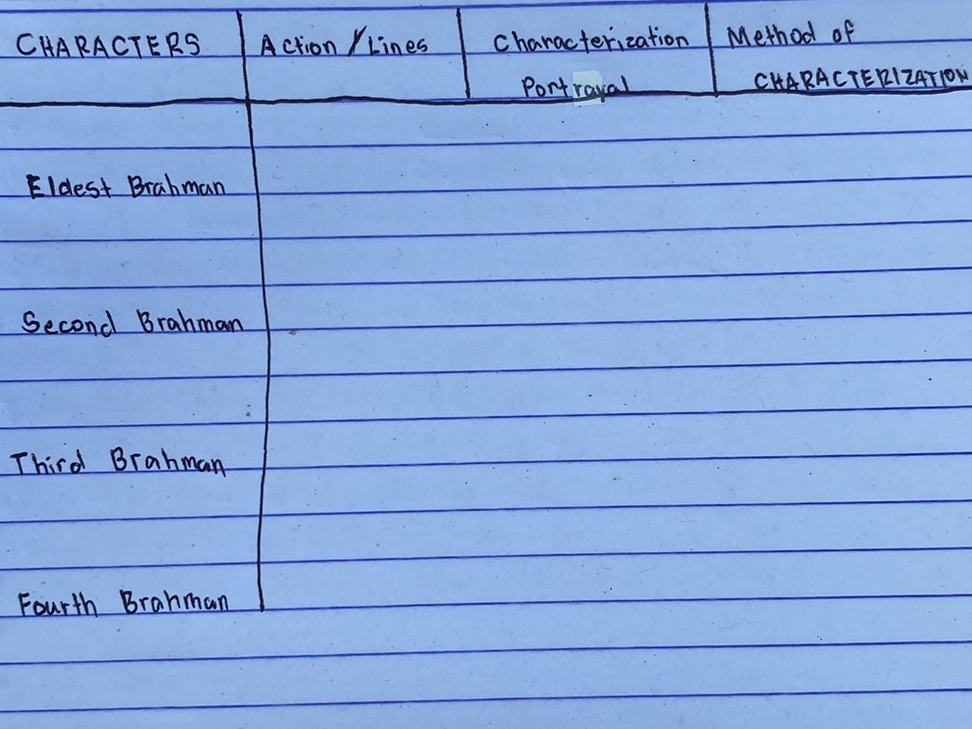 CHARACTERS Action/Lines Characterization Method of
Portrayal CHARACTERIZATION
Eldest Brahman
Second Brahman
Third Brahman
Fourth Brahman